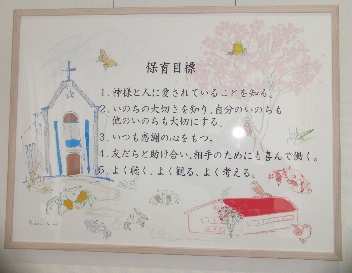 保育目標
1.神様と人に愛されていることを知る。
2.いのちの大切さを知り、自分のいのちも
他のいのちも大切にする。
3.いつも感謝の心をもつ。
4.友だちと助け合い、相手のためにも喜んで働く。
5.よく聴く、よく観る、よく考える。